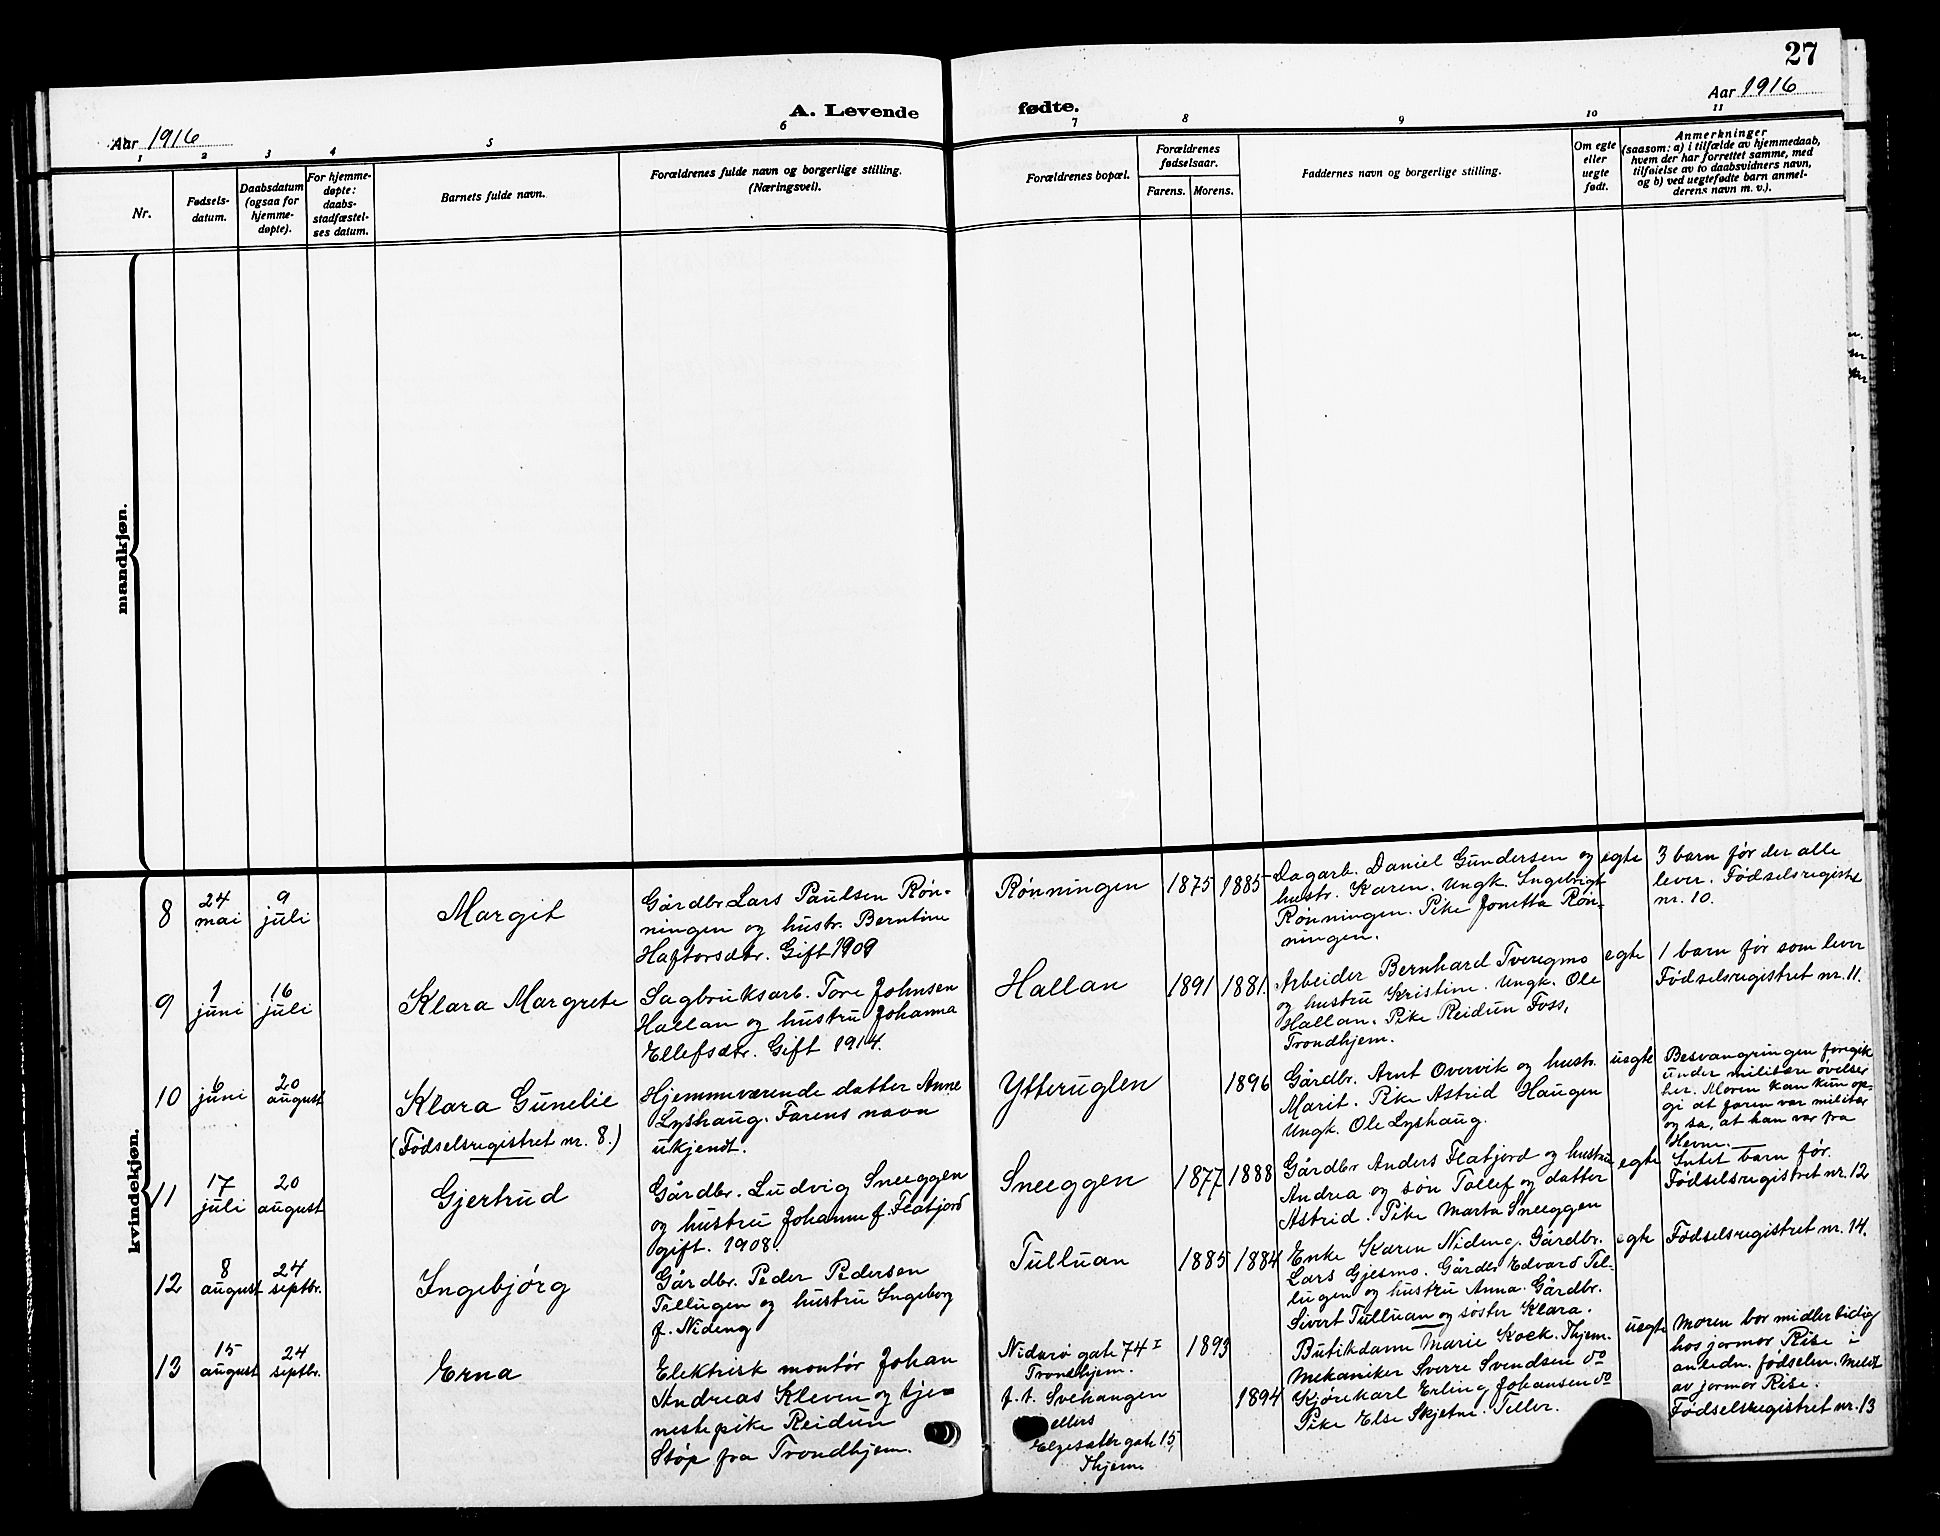 27
Aar 1916
A. Levende fødte.
Aar 1916
1 2 3 4 5 6 7 8 9 10 11
Nr.
Fødsels-
datum.
Daabsdatum
(ogsaa for
hjemme-
døpte).
For hjemme-
døpte:
daabs-
stadfæstel-
ses datum.
Barnets fulde navn.
Forældrenes fulde navn og borgerlige stilling.
(Næringsvei).
Forældrenes bopæl.
Forældrenes
fødselsaar.
Farens. Morens.
Faddernes navn og borgerlige stilling.
Om egte
eller
uegte
født.
Anmerkninger
(saasom: a) i tilfælde av hjemmedaab,
hvem der har forrettet samme, med
tilføielse av to daabsvidners navn,
og b) ved uegtefødte barn anmel-
derens navn m. v.).
mandkjøn.
kvindekjøn.
8
24
mai
9
juli
Margit
Gårdbr. Lars Paulsen Røn-
ningen og hustr. Berntine
Haftorsdtr. Gift 1909
Rønningen
1875 1885
Dagarb. Daniel Gundersen og
hustr. Karen. Ungk. Ingebrigt
Rønningen. Pike Jonetta Røn-
ningen.
egte
3 barn før der alle
lever. Fødselsregistret
nr. 10.
9
1
juni
16
juli
Klara Margrete
Sagbruksarb. Tore Johnsen
Hallan og hustru Johanna
Ellefsdtr. Gift 1914.
Hallan
1891 1881.
Arbeider Bernhard Tveregmo
og hustru Kristine. Ungk. Ole
Hallan. Pike Reidun Foss,
Trondhjem.
egte
1 barn før som lever
Fødselsregistret nr. 11.
10
6
juni
20
august
Klara Gunelie
(Fødselsregistret nr. 8.)
Hjemmeværende datter Anne
Lyshaug. Farens navn
ukjendt.
Ytteruglen
1896
Gårdbr. Arnt Overvik og hustr.
Marit. Pike Astrid Haugen
Ungk. Ole Lyshaug.
uegte
Besvangringen foregik
under militære øvelser
her. Moren kan kun op-
gi at faren var militær
og sa, at han var fra
Hevne.
11
17
juli
20
august
Gjertrud
Gårdbr. Ludvig Sneeggen
og hustru Johanne f. Flatjord
gift. 1908.
Sneeggen
1877 1888
Gårdbr Anders Flatjord og hustru
Andrea og søn Tollef og datter
Astrid. Pike Marta Sneeggen
egte
Intet barn før.
Fødselsregistret nr. 12
12
8
august
24
septbr.
Ingebjørg
Gårdbr. Peder Pedersen
Tellugen og hustru Ingeborg
f. Nideng
Tulluan
1885 1884
Enke Karen Nideng. Gårdbr.
Lars Gjesmo. Gårdbr Edvard Tel-
lugen og hustru Anna. Gårdbr.
Sivert Tulluan og søster Klara.
egte
Fødselsregistret nr. 14.
13
15
august
24
septbr.
Erna
Elektrisk montør Johan
Andreas Kleven og tje-
nestepike Reidun
Støp fra Trondhjem.
Nidarø gate 74 I
Trondhjem.
f. t. Svehaugen
ellers
Elgesæter gate 15,
Thjem.
1893
1894
Butikdame Marie Kock. Thjem.
Mekaniker Sverre Svendsen do
Kjørekarl Erling Johansen do
Pike Else Skjetne. Tiller.
uegte
Moren bor midlertidig
hos jormor Rise i
anledn. fødselen. Meldt
av jormor Rise.
Fødselsregistret nr. 13